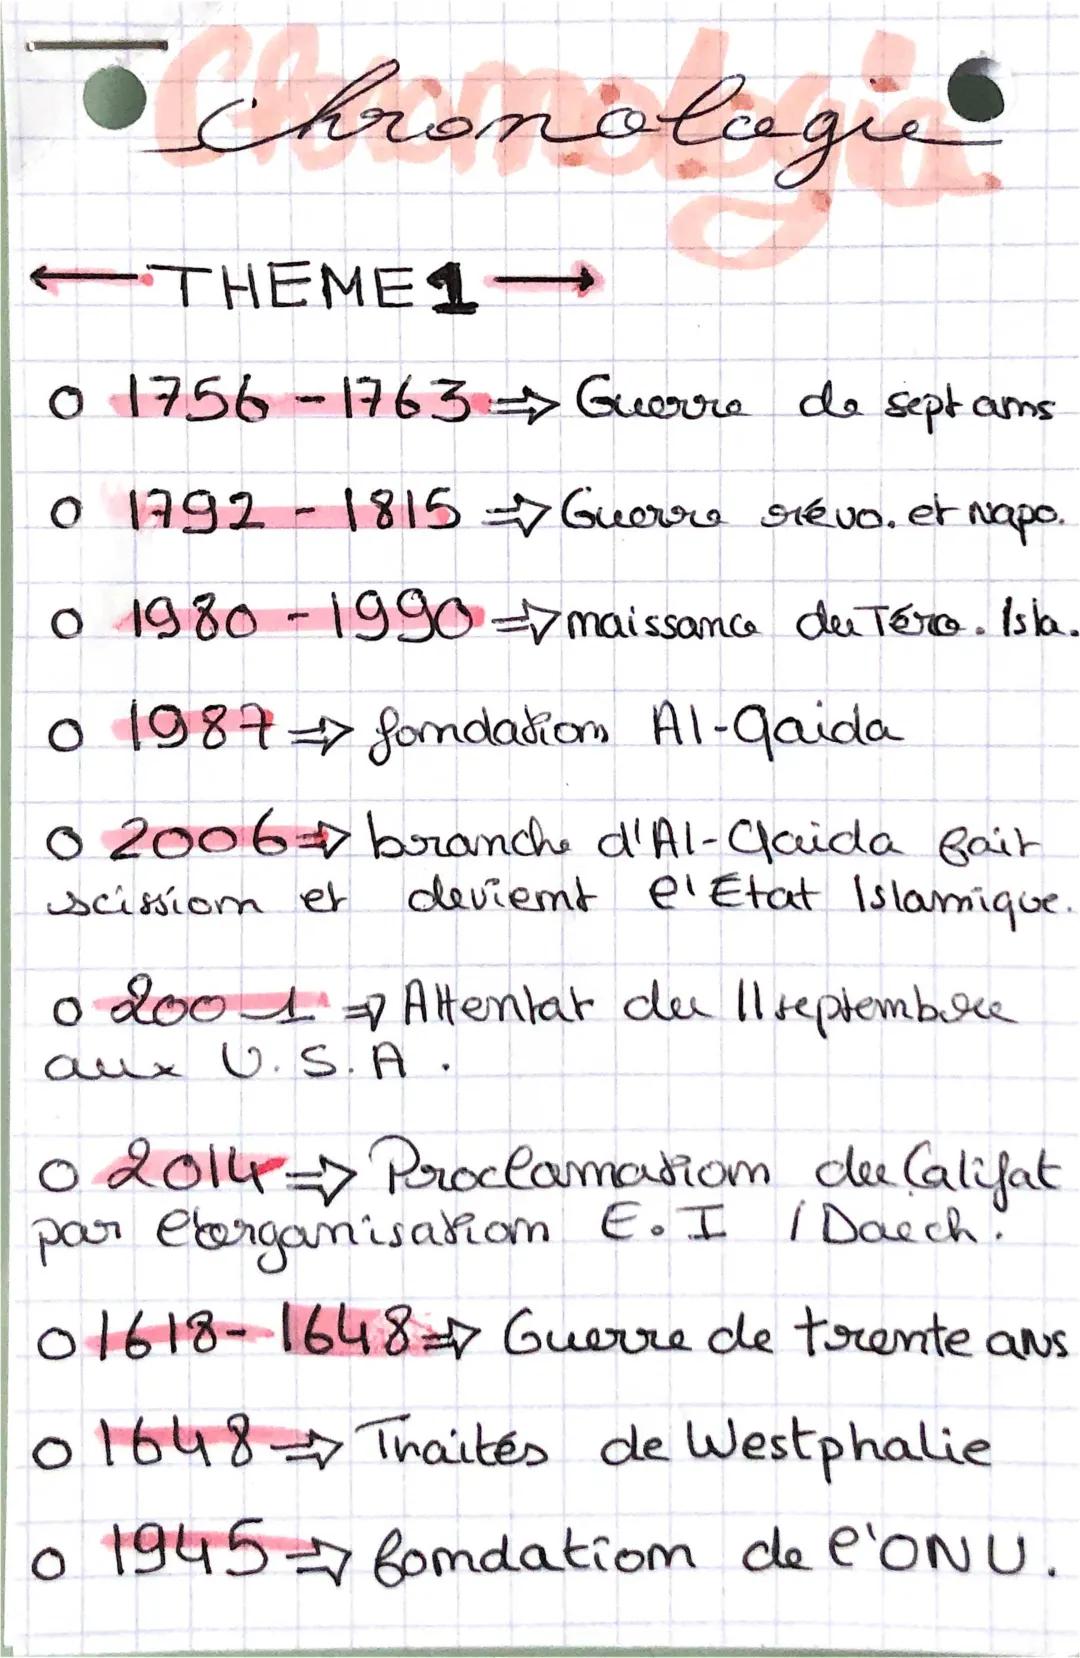 Chronologie
← THEME 1 →
o 1756 - 1763 ⇒ Guerre de sept ans
o 1792 - 1815 ⇒ Guerre révo. et Napo.
o 1980 - 1990 ⇒ naissance du Téro. Isla.
o 1987 ⇒ fondation Al-Qaida
o 2006 ⇒ branche d'Al-Qaida fait
scission et devient l'État Islamique.
o 2001 ⇒ Attentat du 11 septembre
aux U.S.A.
o 2014 ⇒ Proclamation du Califat
par l'organisation E.I / Daech.
o 1618 - 1648 ⇒ Guerre de trente ans
o 1648 ⇒ Traités de Westphalie
o 1945 ⇒ fondation de l'ONU.